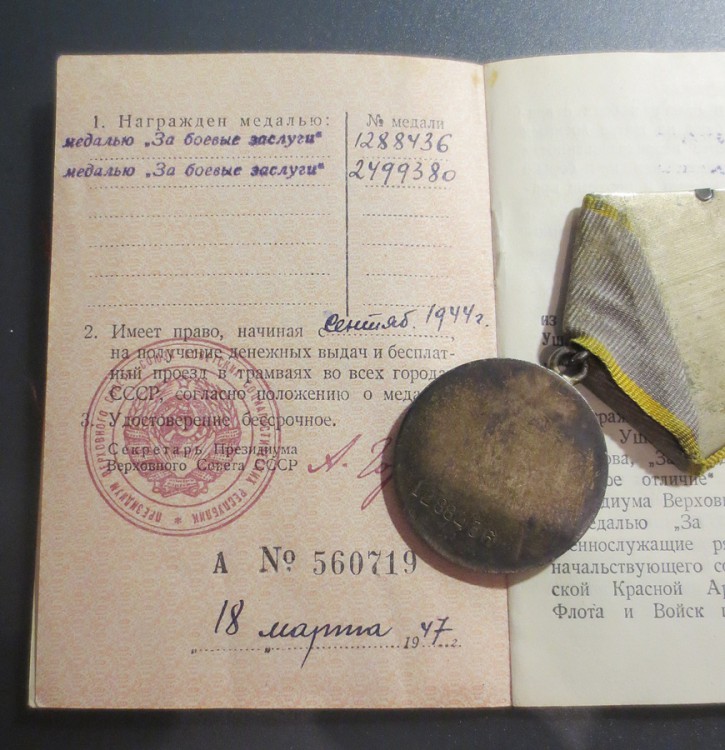 1. Награжден медалью:
№ медали
медалью „За боевые заслуги“
1288436
медалью „За боевые заслуги“
2499380
2. Имеет право, начиная с сентяб. 1944 г.
на получение денежных выдач и бесплат-
ный проезд в трамваях во всех города
СССР, согласно положению о меда
3. Удостоверение бессрочное.
Секретарь Президиума
Верховного Совета СССР
А №560719
„18 „ марта 1947 г.
1288436
из
Уш
Уш
ова, „За
ное отличие“
идиума Верховн
медалью „За
еннослужащие
начальствующего со
ской Красной Ар
Флота и Войск